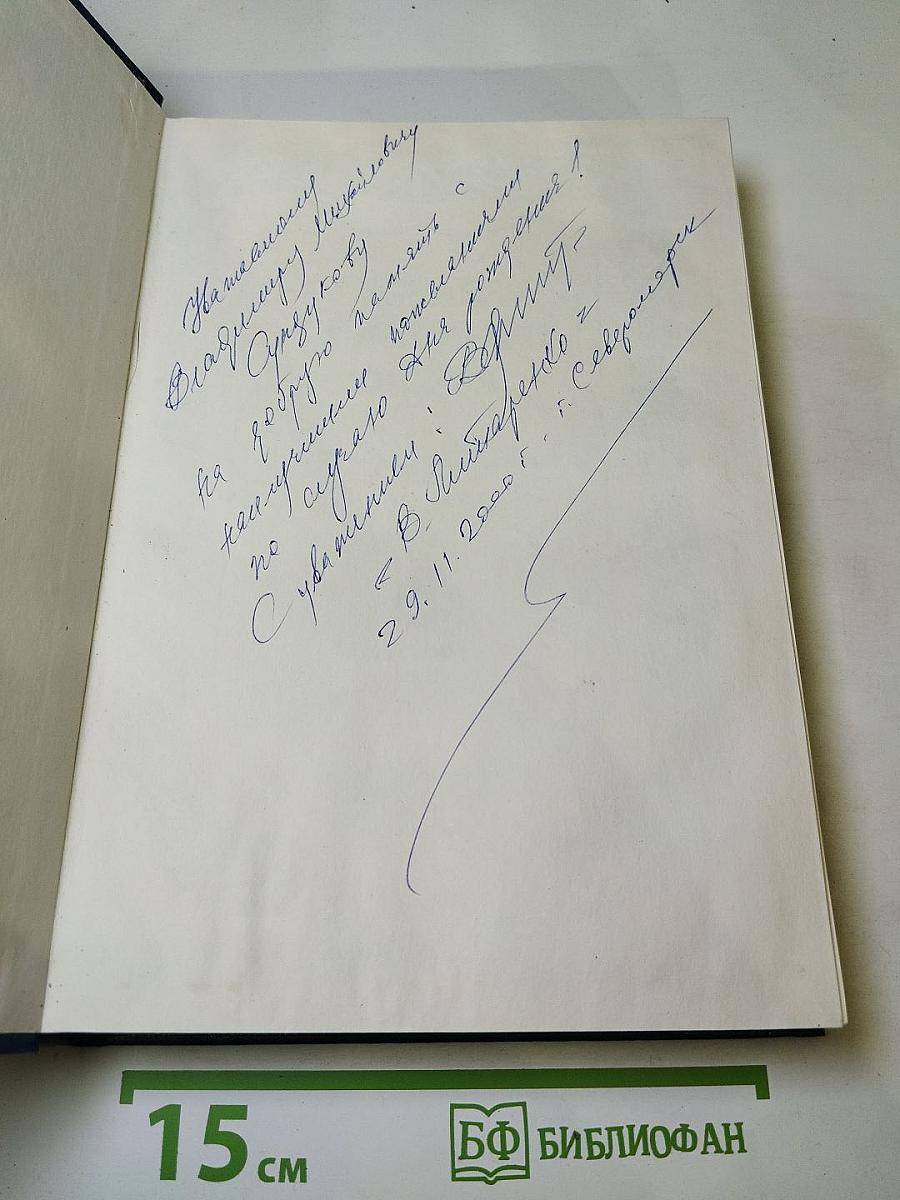 Уважаемому
Владимиру Михайловичу
Сундукову
на добрую память с
наилучшими пожеланиями
по случаю Дня рождения!
С уважением:
< В. Литаренко >
29.11.2000 г. г. Североморск
15 см
БФ БИБЛИОФАН